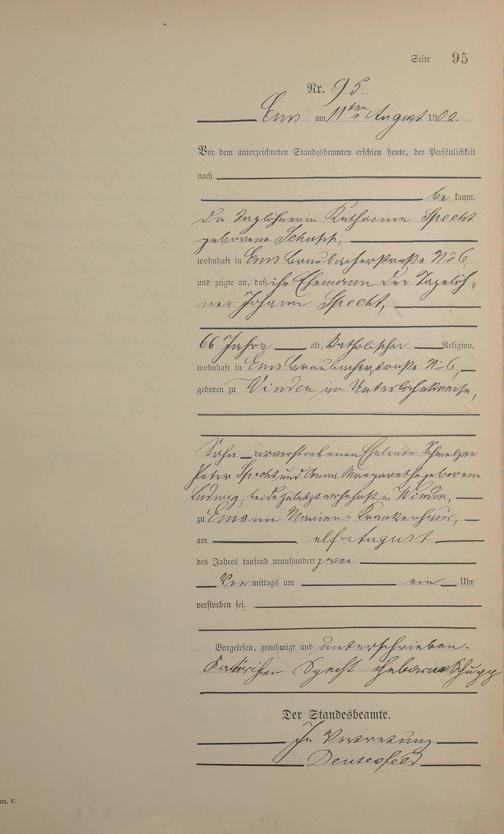 Seite 95
Nr. 95.
Ems am 11ten August 1902.
Vor dem unterzeichneten Standesbeamten erschien heute, der Persönlichkeit
nach
be kannt,
die Taglöhnerin Katharina Specht
geborene Schupp,
wohnhaft in Ems Braubacherstraße No 6
und zeigte an, daß ihr Ehemann der Tagelöh-
ner Johann Specht,
66 Jahre alt, katholischer Religion,
wohnhaft in Ems Braubacherstraße No 6,
geboren zu Winden im Unterlahnkreise,
Sohn der verstorbenen Eheleute Schmelzer
Peter Specht und Anna Margaretha geborene
Ludwig, beide zuletzt wohnhaft in Winden,
zu Ems im Marien-Krankenhaus,
am elf August
des Jahres tausend neunhundert zwei
Vor mittags um ein Uhr
verstorben sei.
Vorgelesen, genehmigt und unterschrieben.
Specht Schupp
Der Standesbeamte.
In Vertretung
m. C.